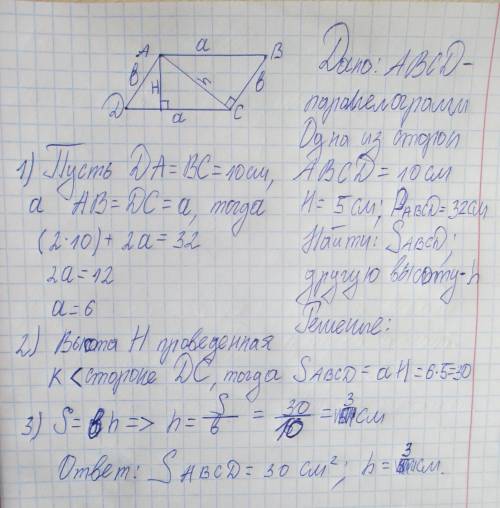 A a B
b H h b
D a C
Дано: ABCD-
параллелограмм
Одна из сторон
ABCD = 10 см
H = 5 см; PABCD = 32 см
Найти: SABCD;
другую высоту - h
Решение:
1) Пусть DA = BC = 10 см,
а AB = DC = a, тогда
(2·10) + 2a = 32
2a = 12
a = 6
2) Высота H проведенная
к < стороне DC, тогда SABCD = aH = 6·5 = 30
3) S = bh => h = S/b = 30/10 = 3 см
Ответ: SABCD = 30 см²; h = 3 см.